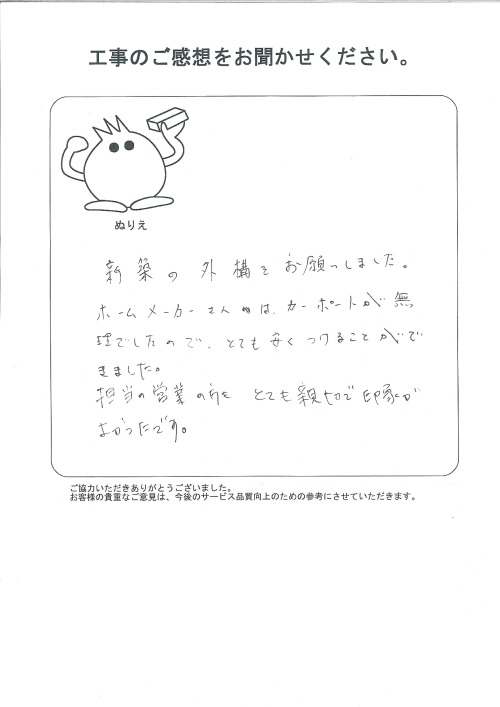 工事のご感想をお聞かせください。
ぬりえ
新築の外構をお願いしました。
ホームメーカーさんは、カーポートが無
理でしたので、とても安くつけることがで
きました。
担当の営業の方も とても親切で印象が
よかったです。
ご協力いただきありがとうございました。
お客様の貴重なご意見は、今後のサービス品質向上のための参考にさせていただきます。